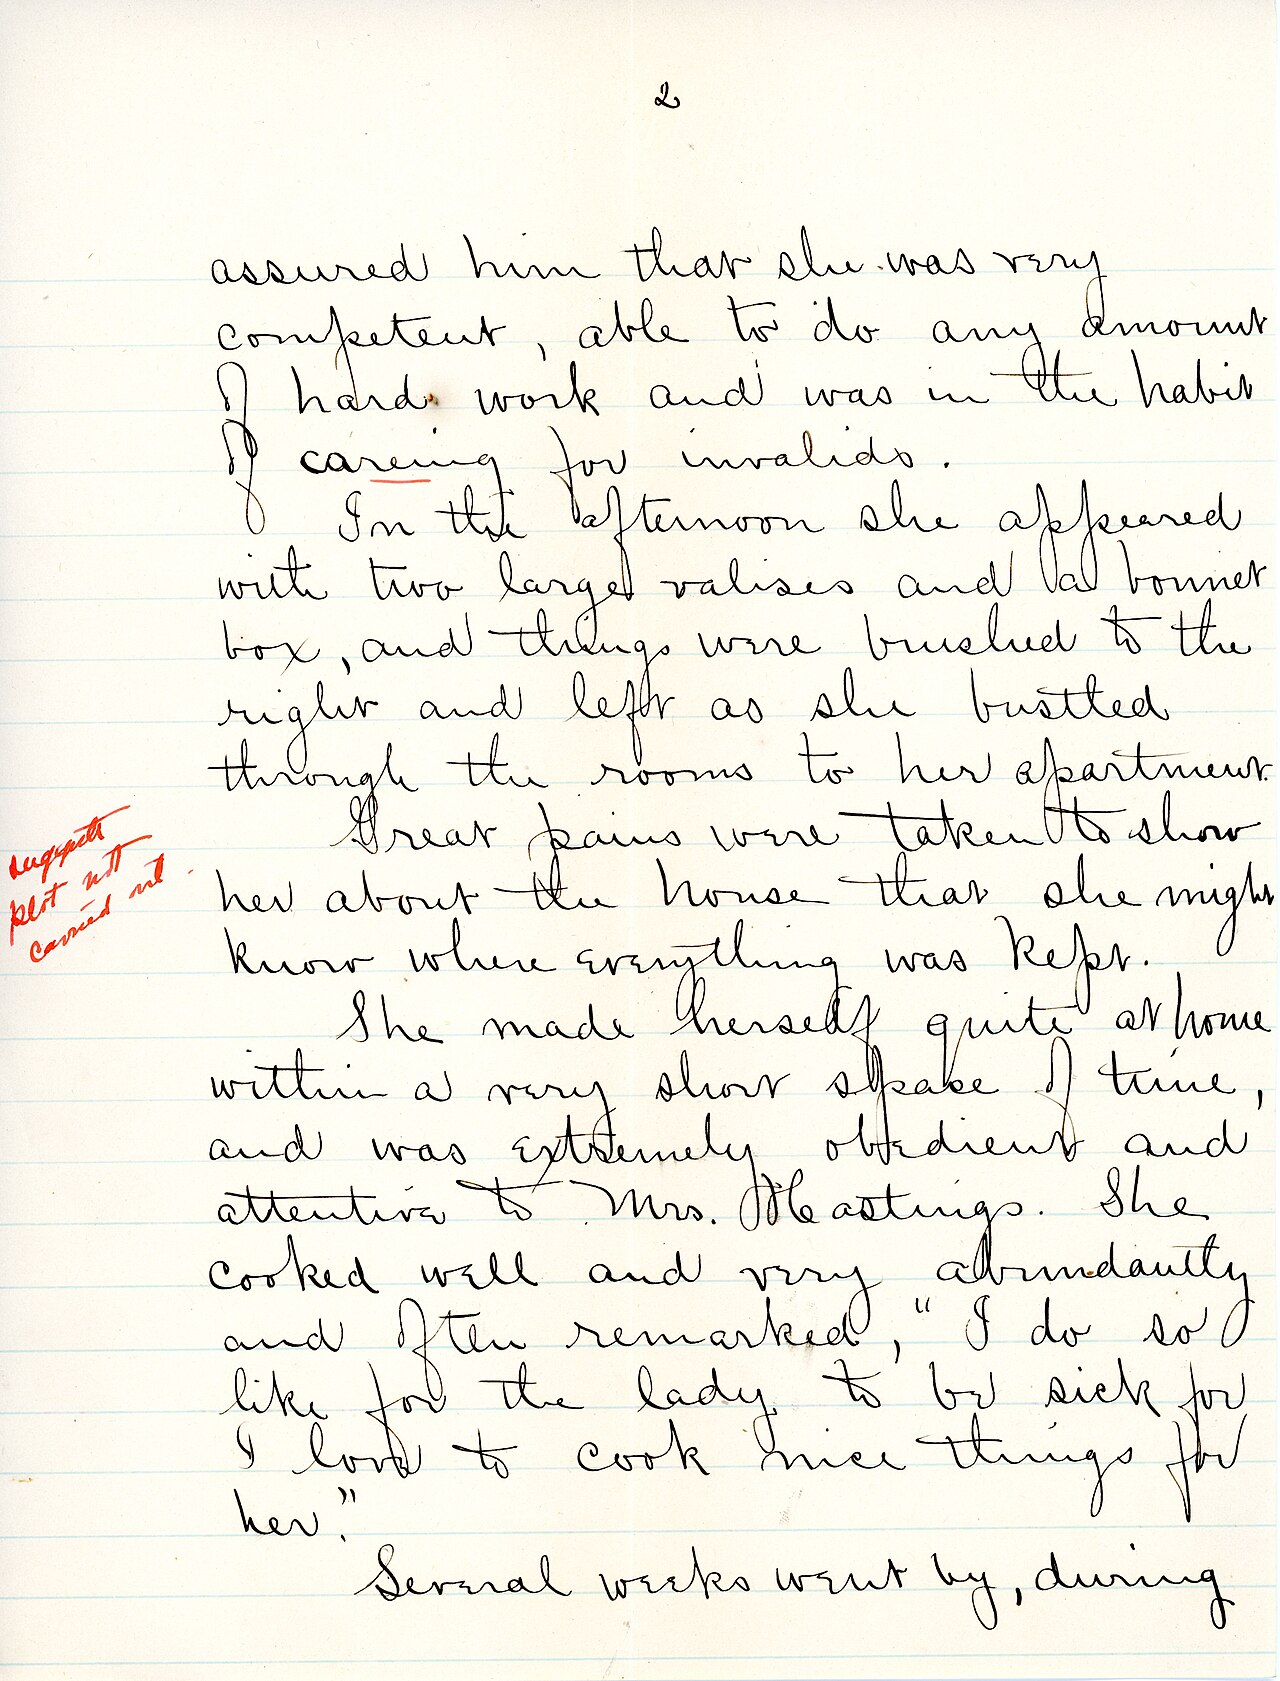 2
assured him that she was very
competent, able to do any amount
of hard work and was in the habit
of careing for invalids.
In the afternoon she appeared
with two large valises and a bonnet
box, and things were brushed to the
right and left as she bustled
through the rooms to her apartment.
Great pains were taken to show
her about the house that she might
know where everything was kept.
suggests
plot not
carried out
She made herself quite at home
within a very short space of time,
and was extremely obedient and
attentive to Mrs. Hastings. She
cooked well and very abundantly
and often remarked, "I do so
like for the lady to be sick for
I love to cook nice things for
her."
Several weeks went by, during